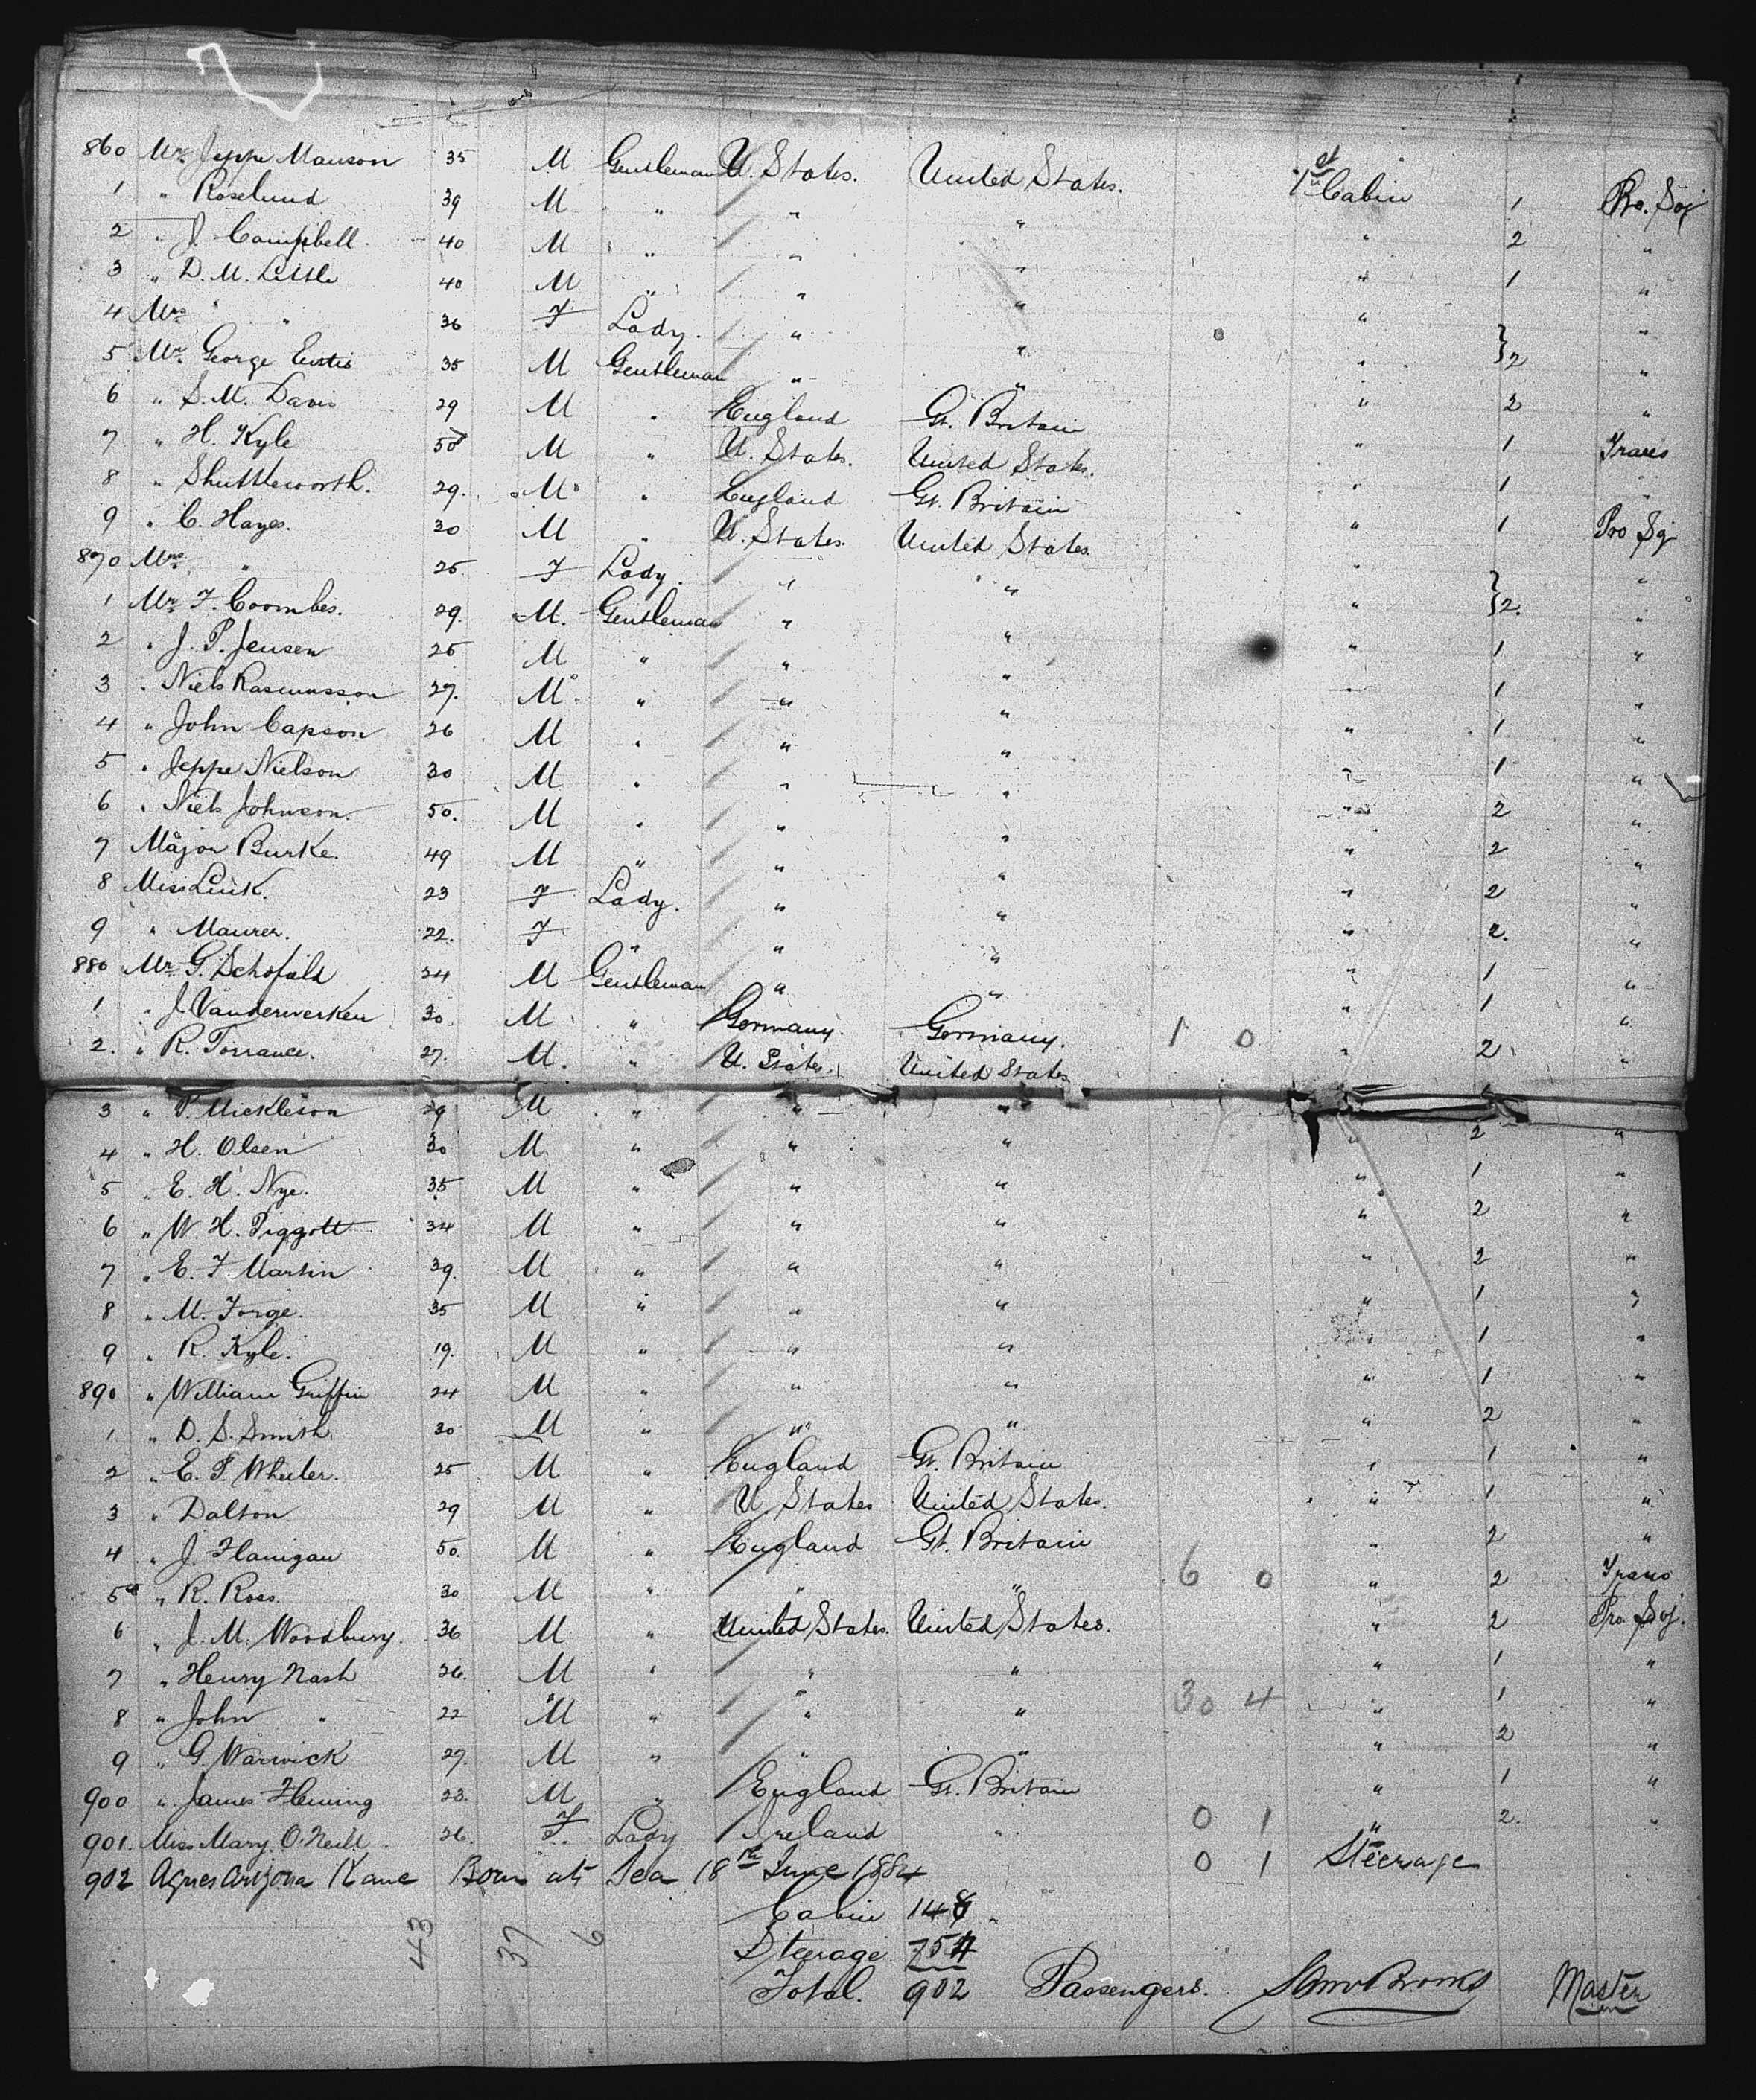 860 Mr. Jeppe Manson 35 M Gentleman U. States. United States. 1st Cabin 1 Pro. Soj
1 " Roselund 39 M " " " " 2 "
2 " J. Campbell 40 M " " " " 1 "
3 " D. M. Little 40 M " " " " "
4 Mrs " 36 F Lady. " " " } 2 "
5 Mr. George Eustis 35 M Gentleman " " " 2 "
6 " S. M. Davis 29 M " England Gt. Britain " 1 Trans
7 " H. Kyle 50 M " U. States. United States. " 1 "
8 " Shuttleworth. 29. M " England Gt. Britain " 1 Pro Sj
9 " C. Hayes. 30 M " U. States. United States. " "
870 Mrs " 25. F Lady. " " " } 2. "
1 Mr. F. Coombes. 29. M. Gentleman " " " 1 "
2 " J. P. Jensen 25 M " " " " 1 "
3 " Niels Rasmusson 27. M " " " " 1 "
4 " John Capson 26 M " " " " 1 "
5 " Jeppe Nielson 30 M " " " " 2 "
6 " Niels Johnson. 50. M " " " " 2 "
7 Major Burke. 49 M " " " " 2 "
8 Miss Link. 23 F Lady. " " " 2. "
9 " Maurer. 22. F " " " " 1 "
880 Mr. G. Schofield 24 M Gentleman " " " 1 "
1 " J. Vanderwerken 30 M " Germany. Germany. 1 0 " 2 "
2. " R. Torrance. 27. M. " U. States. United States.
3 " P. Mickleson 29 M " " " " 2 "
4 " H. Olsen 30 M " " " " 1 "
5 " E. H. Nye. 35 M " " " " 2 "
6 " W. H. Piggott 34 M " " " " 2 "
7 " E. F. Martin 39. M " " " " 1 "
8 " M. Forge. 35 M " " " " 1 "
9 " R. Kyle. 19. M " " " " 1 "
890 " William Griffin 24 M " " " " 2 "
1 " D. S. Smith. 30 M " " " " 1 "
2 " E. P. Wheeler. 25 M " England Gt. Britain " 1 "
3 " Dalton 29 M " U. States United States. " 2 "
4 " J. Flanigan 50. M " England Gt. Britain " 2 Trans
5 " R. Ross. 30 M " " " 6 0 " 2 Pro Soj.
6 " J. M. Woodbury. 36 M " United States. United States. " 1 "
7 " Henry Nash 26. M " " " " 1 "
8 " John " 22 M " " " 30 4 " 2 "
9 " G. Warwick 27. M " " " " 1 "
900 " James Fleming 23. M " England Gt. Britain " 2. "
901. Miss Mary O'Neill 26. F. Lady Ireland " 0 1 "
902 Agnes Arizona Kane Born at Sea 18th June 1884 0 1 Steerage
Cabin 148
Steerage 754
43 37 6
Total. 902 Passengers. Saml Brooks Master